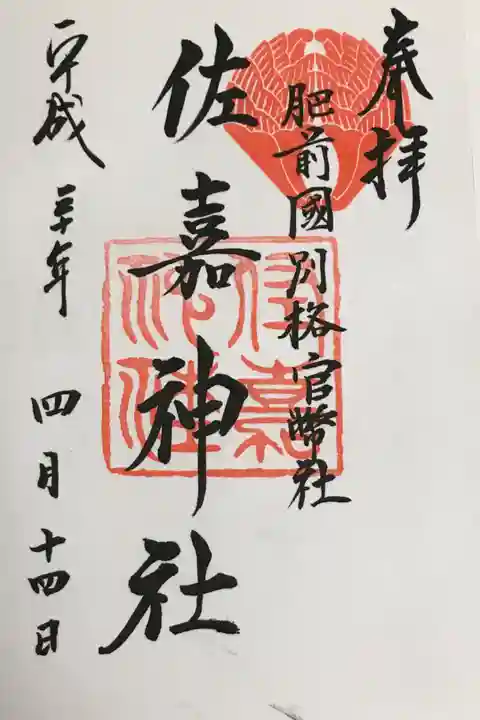 奉拝
肥前國別格官幣社
佐嘉神社
佐嘉神社
平成三十年 四月十四日